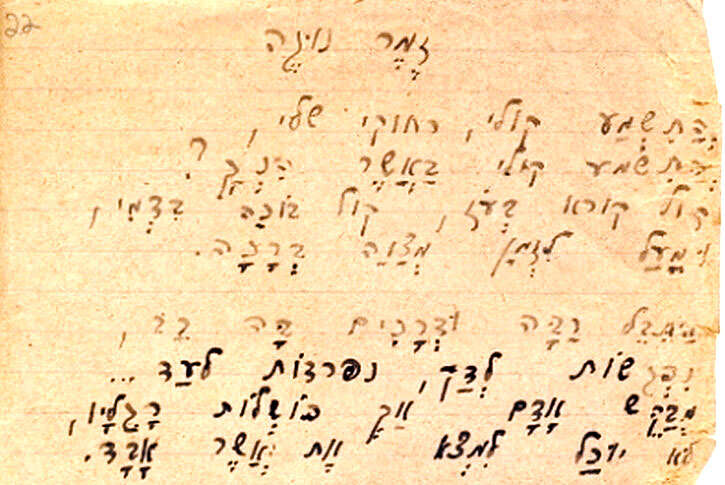 22
זֶמֶר נוּגֶה
הֲתִשְׁמַע קולי, רחוקי שלי,
הֲתִשמע קולי בַּאֲשֶׁר הִנְּךָ?
קול קורא בְּעֹז, קול בּוֹכֶה בִּדְמִי,
וּמֵעַל לִזְמַן מְצַוֶּה בְּרָכָה.
הַתֵּבֵל רַבָּה וּדְרָכִים בָּהּ רַב,
נִפְגָּשׁוֹת לְדַק, נפרדוֹת לָעַד...
מְבַקֵּשׁ אָדָם אַךְ כּוֹשְׁלוֹת רַגְלָיו,
לא יוּכַל לִמְצֹא אֶת אֲשֶׁר אָבָד.